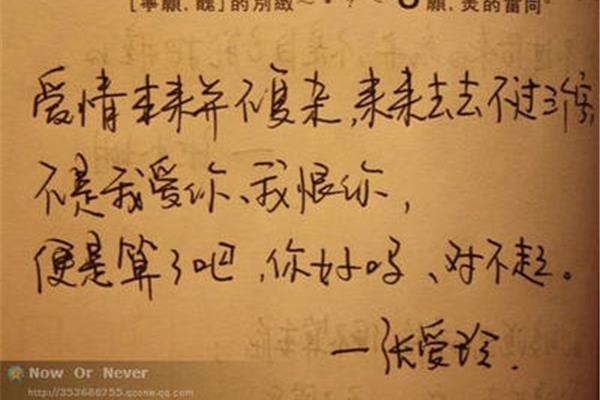 [寧願.醜]的別緻 願.美的雷同。
爱情本来并不复杂,来来去去不过三个字,
不是我爱你、我恨你,
便是算了吧,你好吗、对不起。
—张爱玲.
Now Or Never
http://353688755.qzone.qq.com